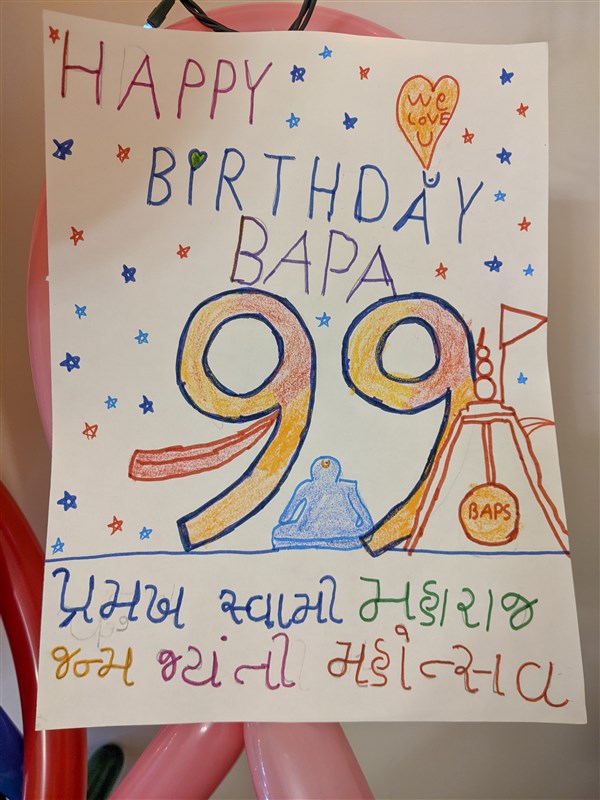 HAPPY
We
LOVE
U
BIRTHDAY
BAPA
99
BAPS
પ્રમખ સ્વામી મહારાજ
જન્મ જયંતી મહોત્સવ